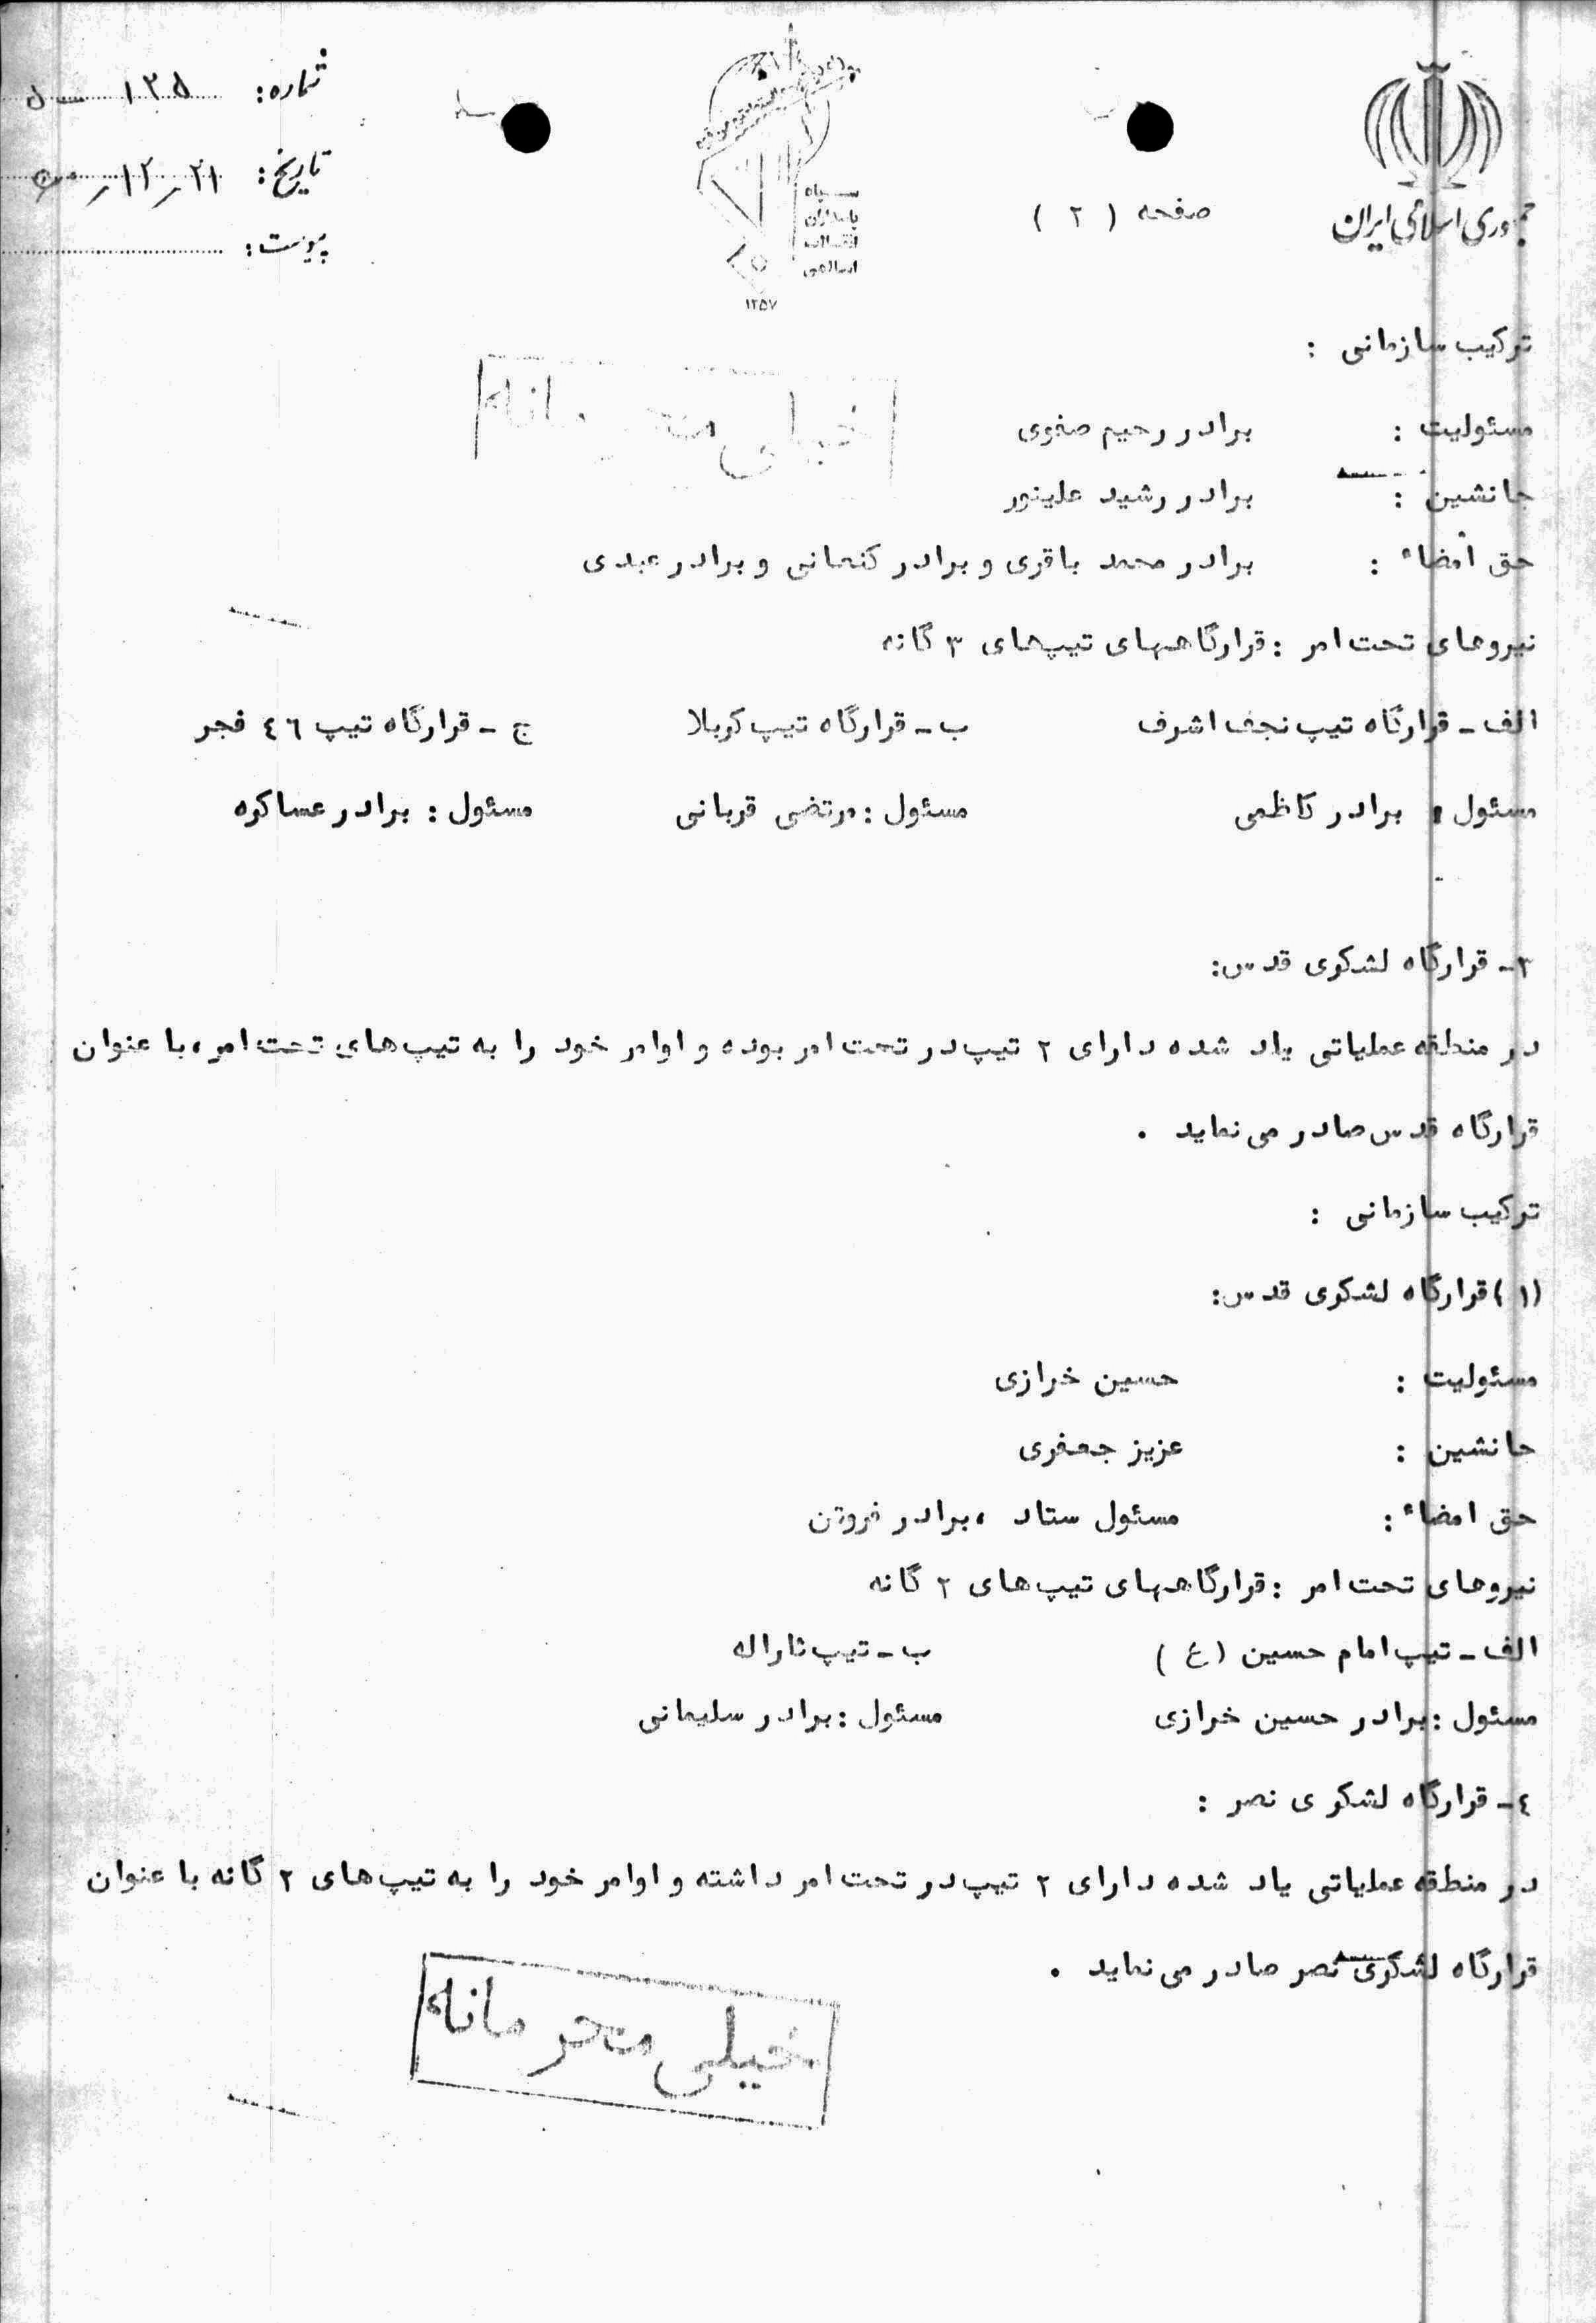 جمهوری اسلامی ایران
صفحه ( ۲ )
سپاه
پاسداران
انقلاب
اسلامی
۱۳۵۷
شماره: ۱۳۵
تاریخ: ۲۱ر۱۲ر
پیوست:
ترکیب سازمانی :
خیلی محرمانه
مسئولیت : برادر رحیم صفوی
جانشین : برادر رشید علینور
حق امضاء : برادر محمد باقری و برادر کنعانی و برادر عبدی
نیروهای تحت امر : قرارگاههای تیپ‌های ۳ گانه
الف ـ قرارگاه تیپ نجف اشرف ب ـ قرارگاه تیپ کربلا ج ـ قرارگاه تیپ ٤٦ فجر
مسئول : برادر کاظمی مسئول : مرتضی قربانی مسئول : برادر عساکره
۳ـ قرارگاه لشکری قدس:
در منطقه عملیاتی یاد شده دارای ۲ تیپ در تحت امر بوده و اوامر خود را به تیپ‌های تحت امر ، با عنوان
قرارگاه قدس صادر می نماید .
ترکیب سازمانی :
(۱) قرارگاه لشکری قدس:
مسئولیت : حسین خرازی
جانشین : عزیز جعفری
حق امضاء : مسئول ستاد ، برادر فروتن
نیروهای تحت امر : قرارگاههای تیپ‌های ۲ گانه
الف ـ تیپ امام حسین (ع ) ب ـ تیپ ثاراله
مسئول : برادر حسین خرازی مسئول : برادر سلیمانی
٤ـ قرارگاه لشکری نصر :
در منطقه عملیاتی یاد شده دارای ۲ تیپ در تحت امر داشته و اوامر خود را به تیپ‌های ۲ گانه با عنوان
قرارگاه لشکری نصر صادر می نماید .
خیلی محرمانه